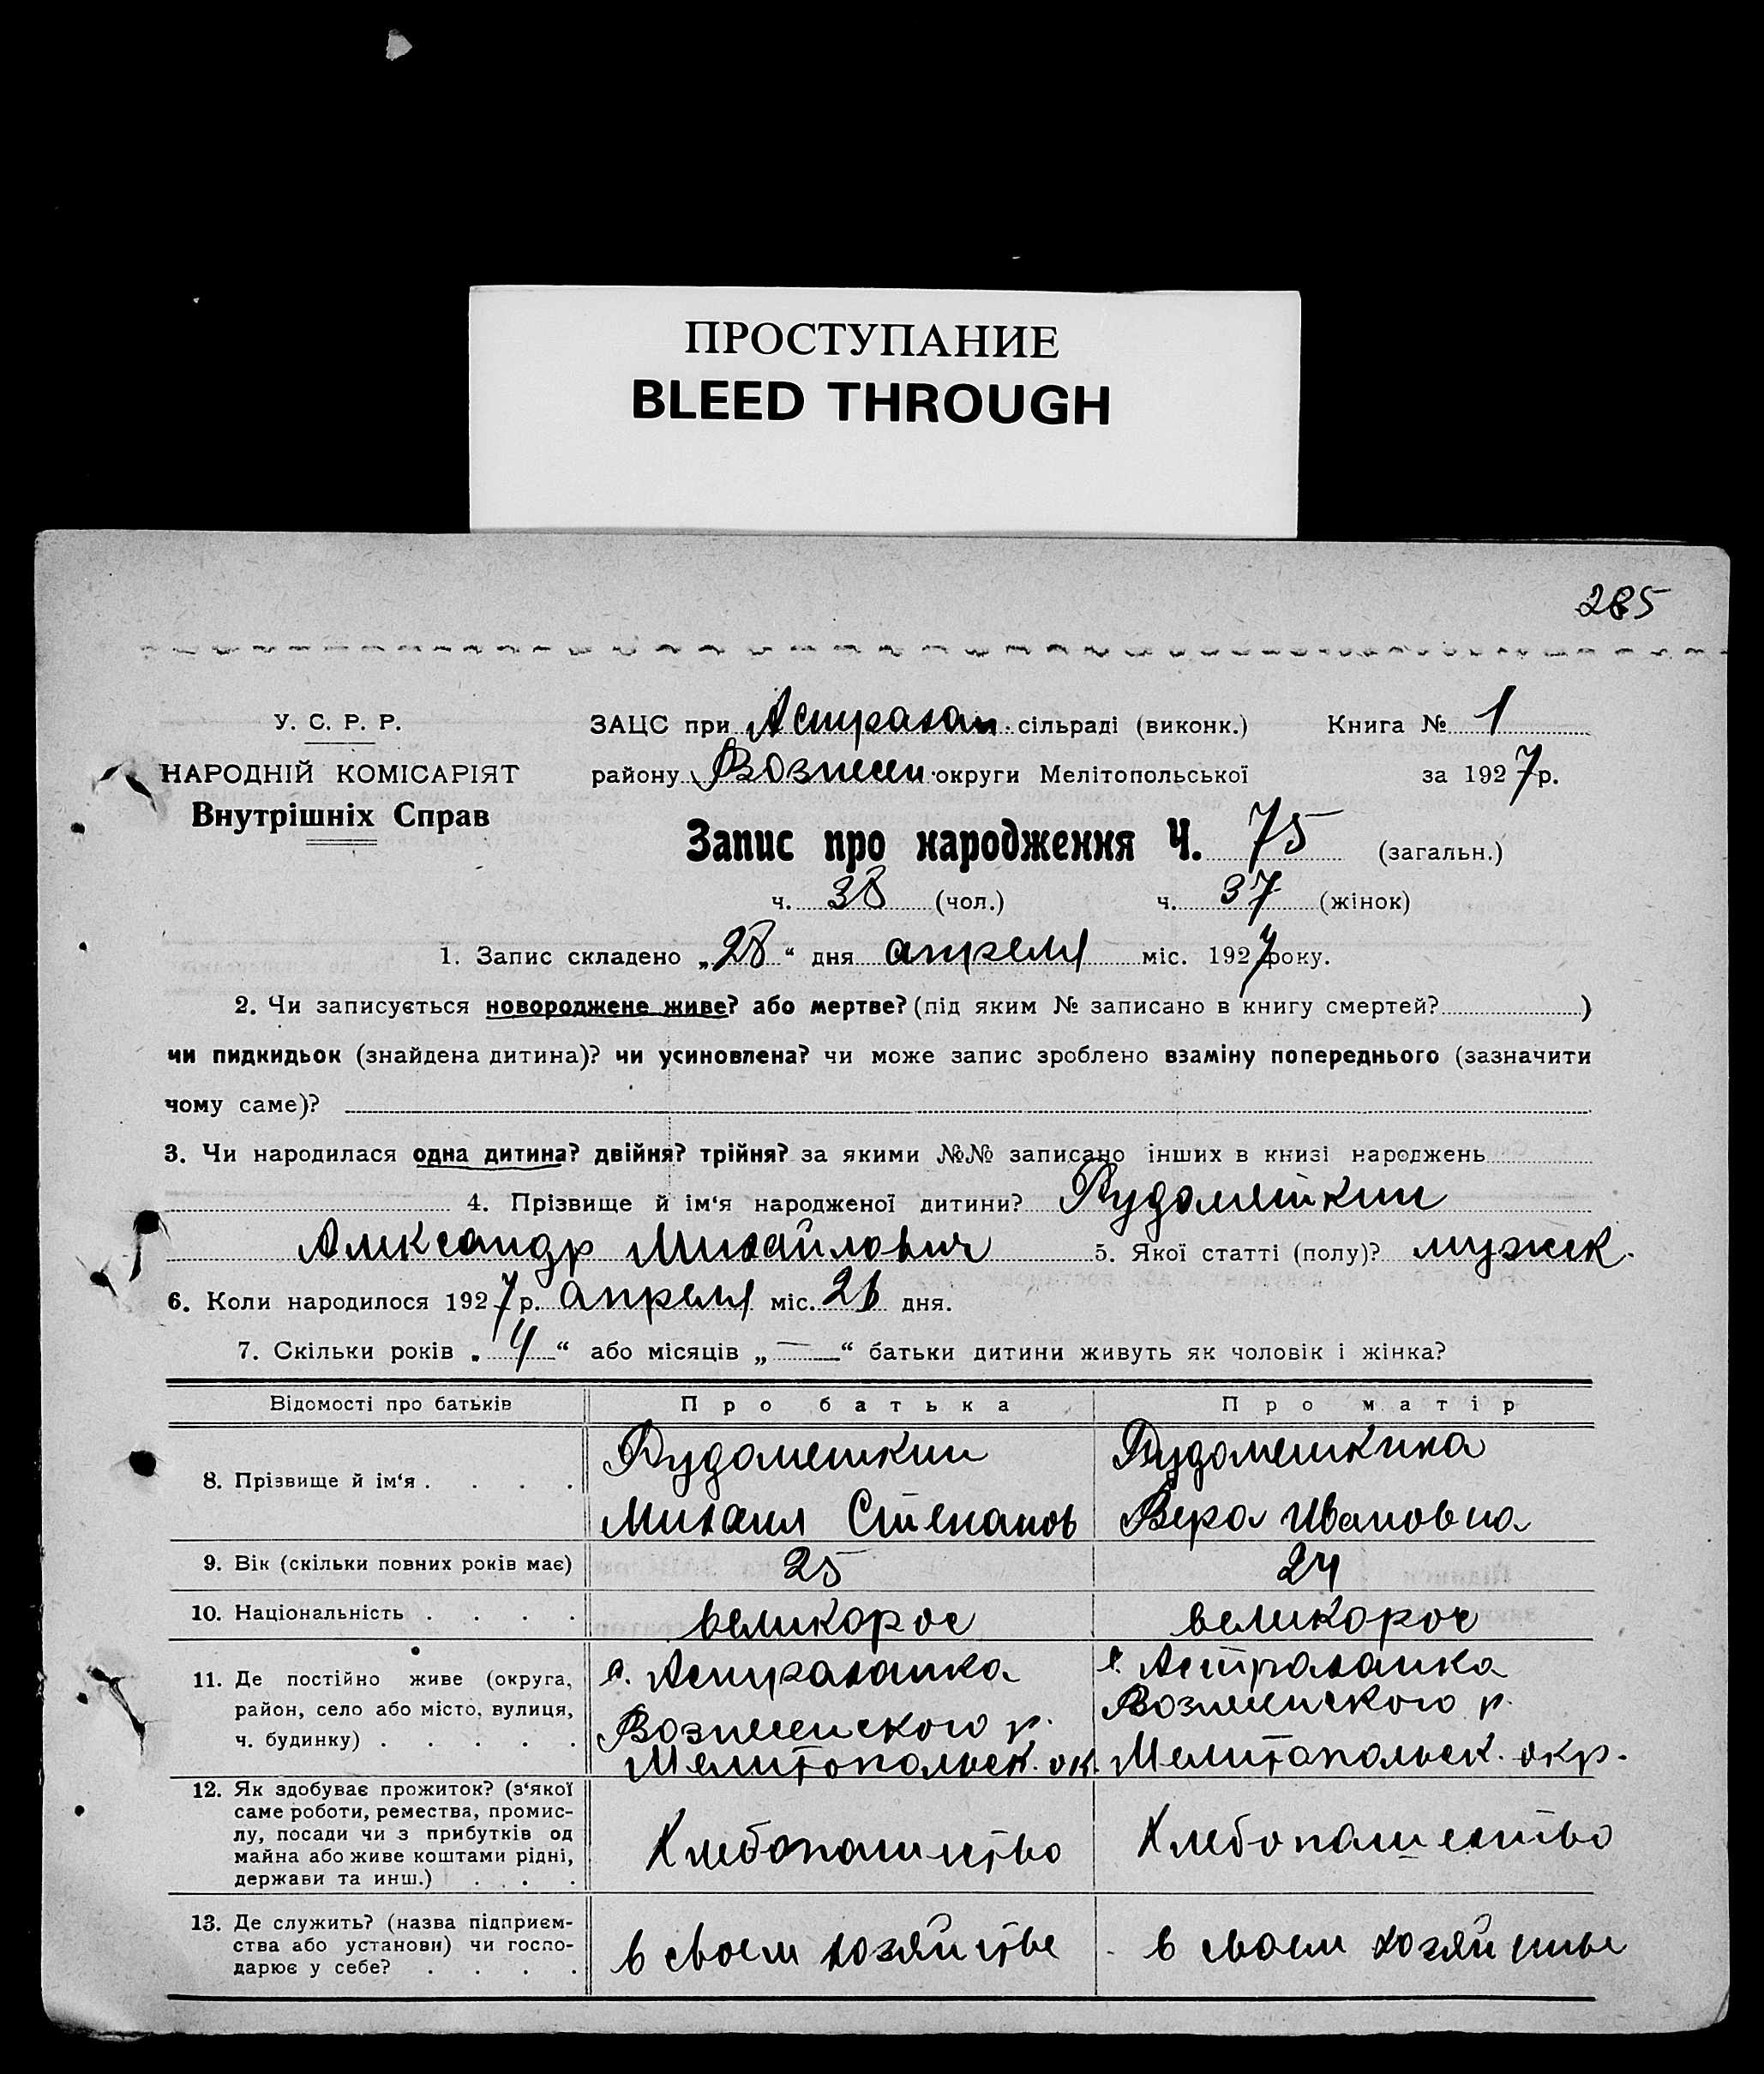 ПРОСТУПАНИЕ
BLEED THROUGH
285
У. С. Р. Р.
ЗАЦС при Астрахан. сільраді (виконк.) Книга № 1
НАРОДНІЙ КОМІСАРІЯТ
району Вознесен. округи Мелітопольської за 1927 р.
Внутрішніх Справ
Запис про народження Ч. 75 (загальн.)
ч. 38 (чол.) ч. 37 (жінок)
1. Запис складено „28“ дня апреля міс. 1927 року.
2. Чи записується новороджене живе? або мертве? (під яким № записано в книгу смертей? )
чи пидкидьок (знайдена дитина)? чи усиновлена? чи може запис зроблено взаміну попереднього (зазначити
чому саме)?
3. Чи народилася одна дитина? двійня? трійня? за якими №№ записано інших в книзі народжень
4. Прізвище й ім‘я народженої дитини? Рудометкин
Александр Михайлович 5. Якої статті (полу)? мужск.
6. Коли народилося 1927 р. апреля міс. 26 дня.
7. Скільки років „4“ або місяців „—“ батьки дитини живуть як чоловік і жінка?
Відомості про батьків Про батька Про матір
8. Прізвище й ім‘я . . . . Рудометкин Рудометкина
Михаил Степанов Вера Ивановна
9. Вік (скільки повних років має) 25 24
10. Національність . . . . великорос великорос
11. Де постійно живе (округа, с. Астраханка с. Астраханка
район, село або місто, вулиця, Вознесенского р. Вознесенского р.
ч. будинку) . . . . . Мелитопольск. ок. Мелитопольск. окр.
12. Як здобуває прожиток? (з‘якої
саме роботи, ремества, промис-
лу, посади чи з прибутків од
майна або живе коштами рідні,
держави та инш.) . . . Хлебопашество Хлебопашество
13. Де служить? (назва підприєм-
ства або установи) чи госпо-
дарює у себе? . . . . в своем хозяйстве в своем хозяйстве